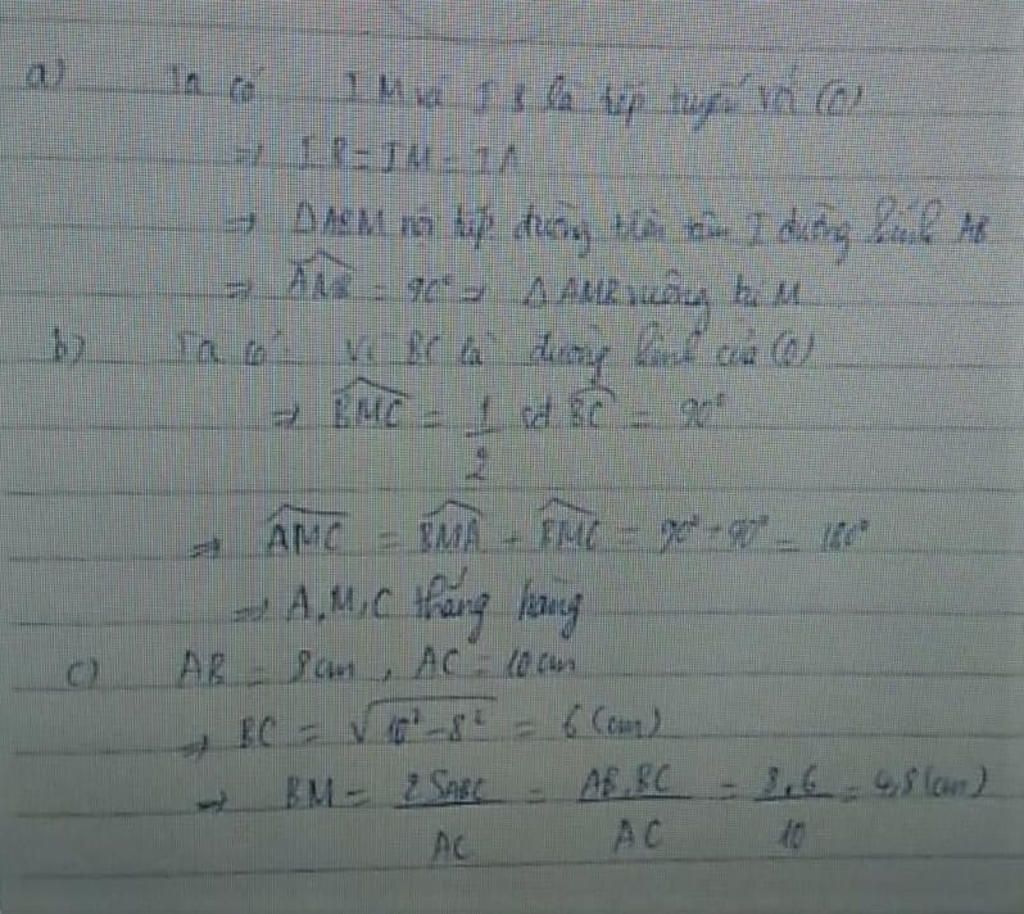 a) Ta có IM và IB là tiếp tuyến với (O)
=> IB = IM = IA
=> ΔABM nội tiếp đường tròn tâm I đường kính AB
=> \widehat{AMB} = 90° => ΔAMB vuông tại M
b) Ta có: Vì BC là đường kính của (O)
=> \widehat{BMC} = \frac{1}{2} sđ \widehat{BC} = 90°
=> \widehat{AMC} = \widehat{BMA} + \widehat{BMC} = 90° + 90° = 180°
=> A, M, C thẳng hàng
c) AB = 8cm, AC = 10cm
=> BC = \sqrt{10² - 8²} = 6 (cm)
=> BM = \frac{2S_{ABC}}{AC} = \frac{AB.BC}{AC} = \frac{8.6}{10} = 4,8 (cm)